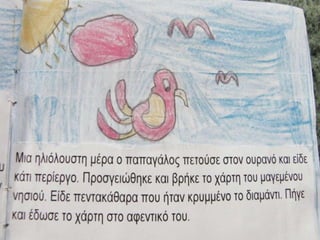 Μια ηλιόλουστη μέρα ο παπαγάλος πετούσε στον ουρανό και είδε
κάτι περίεργο. Προσγειώθηκε και βρήκε το χάρτη του μαγεμένου
νησιού. Είδε πεντακάθαρα που ήταν κρυμμένο το διαμάντι. Πήγε
και έδωσε το χάρτη στο αφεντικό του.